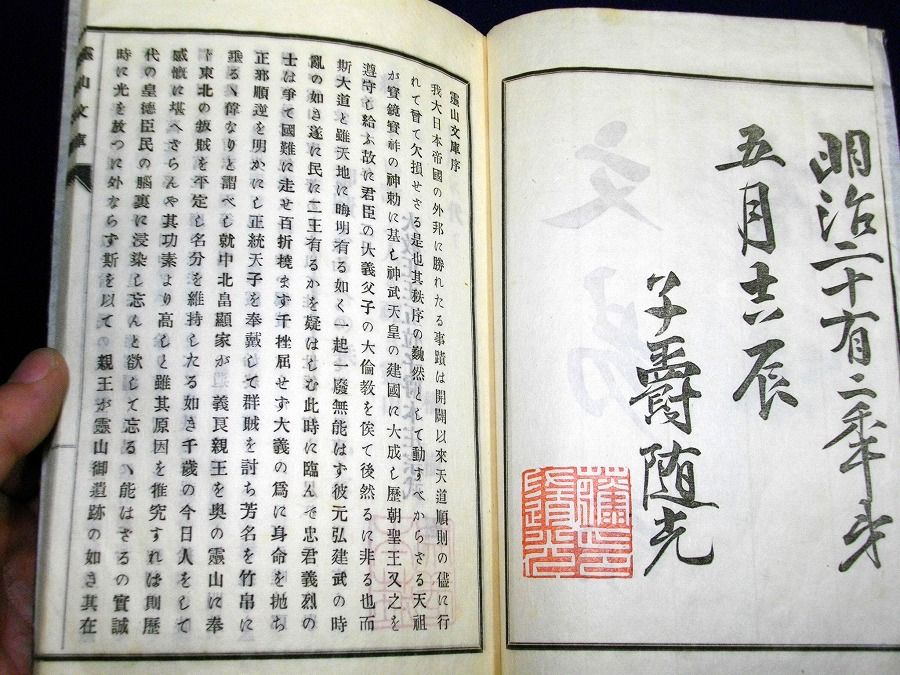 明治二十有二季第
五月吉辰
子爵随光
靈山文庫序
我大日本帝國の外邦に勝れたる事蹟は開闢以來天道順則の儘に行
れて曾て欠損せさる是也其秩序の巍然として動すべからさる天祖
が寶鏡寶祚の神勅に基し神武天皇の建國に大成し歴朝聖王又之を
遵守し給ふ故に君臣の大義父子の大倫教を俟て後然るに非る也而
斯大道と雖天地に晦明有る如く一起一廢無能はず彼元弘建武の時
亂の如き遂に民に二王有るかを疑はしむ此時に臨んで忠君義烈の
士は爭て國難に走せ百折撓ます千挫屈せず大義の爲に身命を抛ち
正邪順逆を明かにし正統天子を奉戴して群賊を討ち芳名を竹帛に
垂るヽ偉なりと謂べし就中北畠顯家が 義良親王を奥の靈山に奉
東北の叛賊を平定し名分を維持したる如き千歳の今日人をして
感慨に堪へさらんや其功素より高しと雖其原因を推究すれは則歴
代の皇德臣民の腦裏に浸染し忘んと欲して忘るヽ能はざるの實誠
時に光を放つに外ならず斯を以ての親王が靈山御遺跡の如き其在
靈山文庫